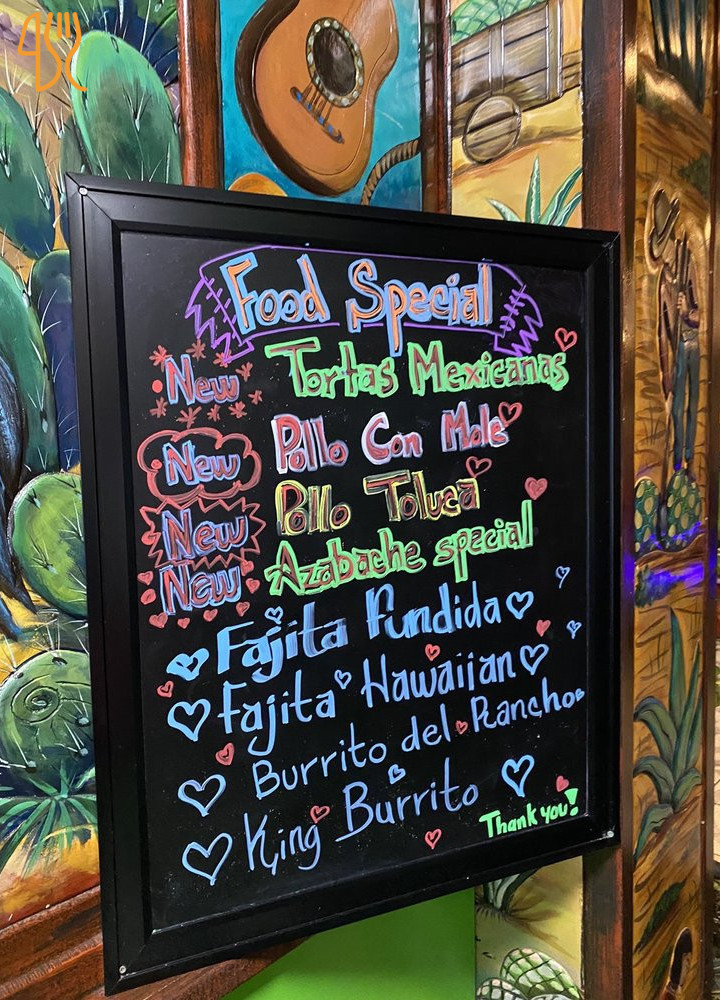 Food Special
New Tortas Mexicanas
New Pollo Con Mole
New Pollo Toluca
New Azabache special
Fajita Fundida
Fajita Hawaiian
Burrito del Rancho
King Burrito
Thank you!